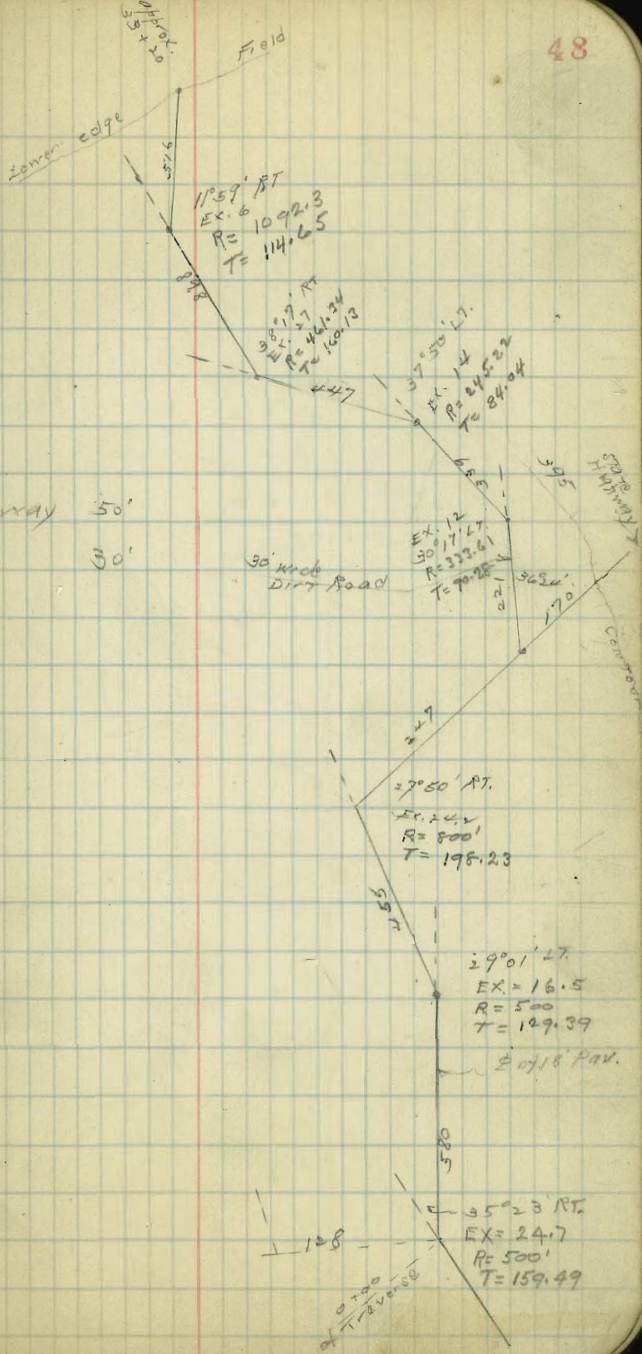 48
approx.
33 + 20
Field
Lower edge
516
11°59' RT
EX. 6
R= 1092.3
T= 114.65
898
38°17' RT
EX. 27
R= 461.34
T= 160.13
447
37°50' LT.
EX. 14
R= 245.22
T= 84.04
339
395
State
Highway
50'
30'
30' wide
Dirt Road
EX. 12
30°17' LT.
R= 333.61
T= 90.28
221
170
Contour
247
27°50' RT.
EX. 24.2
R= 800'
T= 198.23
29°01' LT.
EX. = 16.5
R= 500
T= 129.39
of 18' Pav.
580
35°23' RT.
EX= 24.7
R= 500'
T= 159.49
128
0+00
Traverse